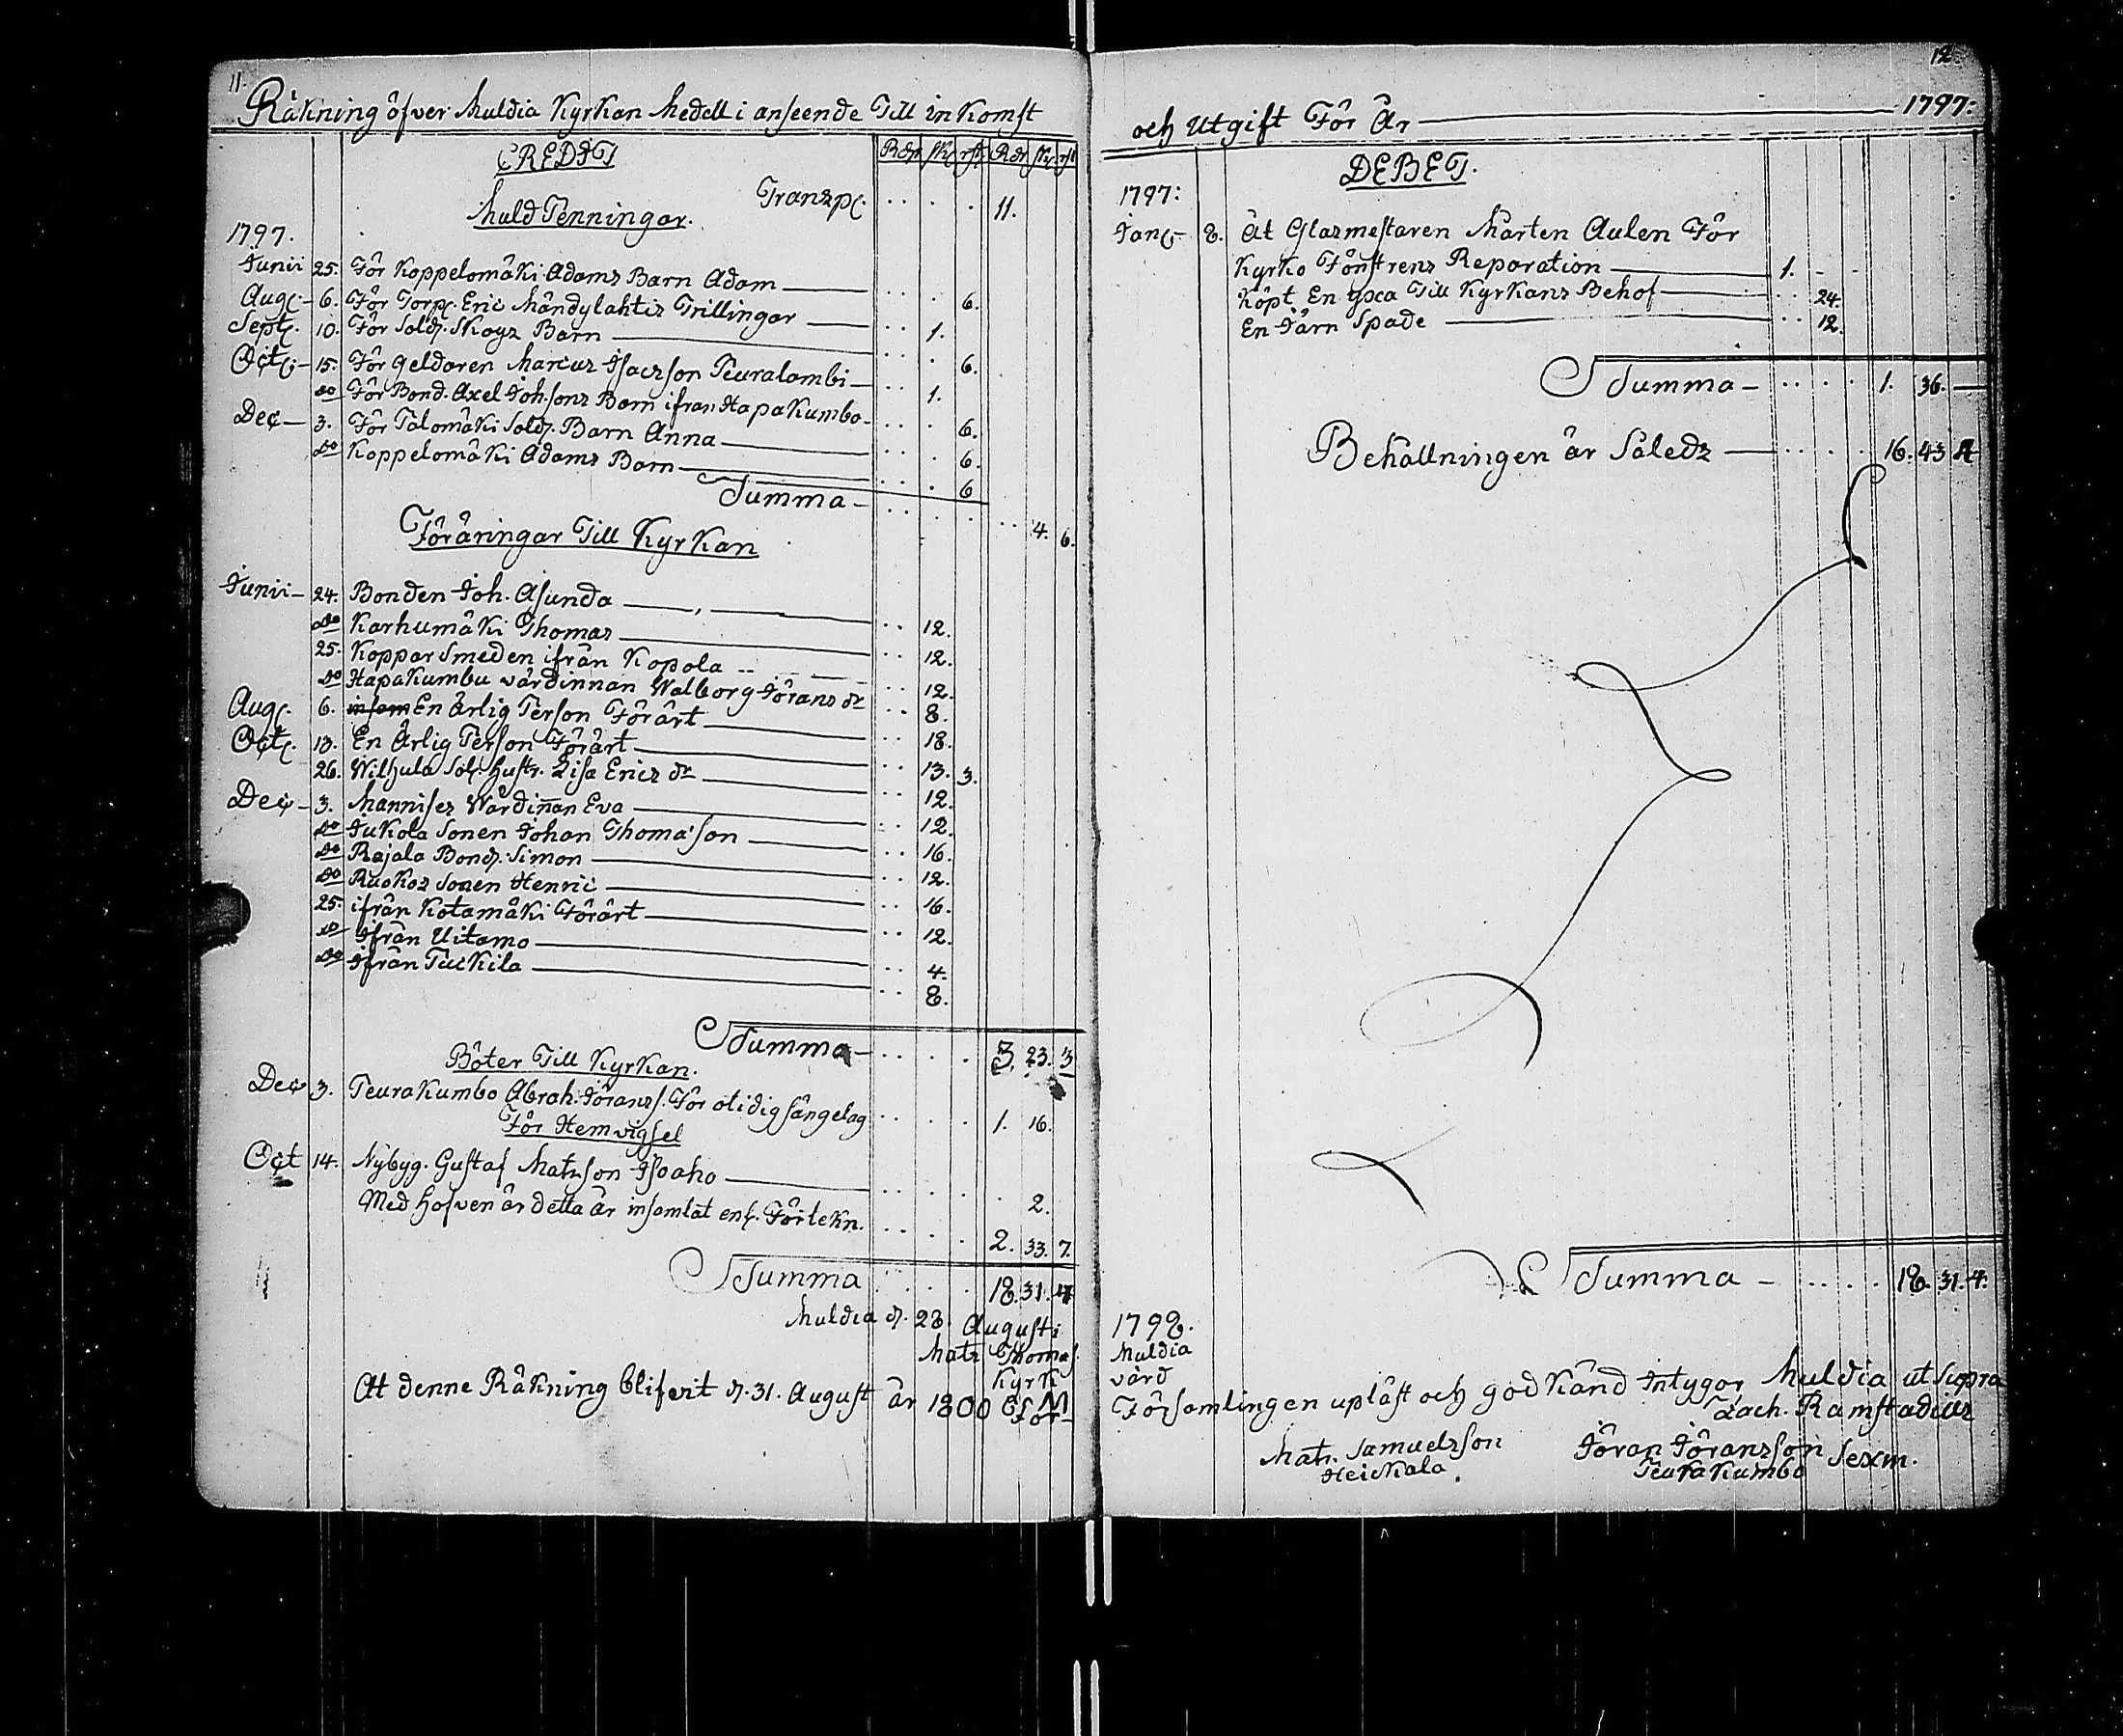 11.
Räkning öfver Muldia Kyrkan Medell i anseende Till inkomst
CREDIT
Rdr sk rst Rdr sk rst
Transp. 11.
Muld Penningar.
1797.
Junii 25. För Koppelomäki Adams Barn Adam 6.
Aug. 6. För Torp. Eric Mändylahtis Trillingar 1.
Sept. 10. För Sold. Skogs Barn 6.
Oct. 15. För Geldaren Marcus Isacsson Peuralambi 1.
Do För Bond. Axel Johsons Barn ifran Hapakumbo 6.
Dec 3. För Talomäki Sold. Barn Anna 6.
Do Koppelomäki Adams Barn 6
Summa 4. 6.
Föräringar Till Kyrkan
Junii 24. Bonden Joh. Asunda 12.
Do Karhumäki Thomas 12.
25. Koppar Smeden ifrån Kopola 12.
Do Hapakumbu värdinnan Walborg Jörans dr 8.
Aug. 6. En ärlig Person Förärt 18.
Oct. 13. En Ärlig Person Förärt 13. 3.
26. Wilhula Sol. hustr. Lisa Erics dr 12.
Dec 3. Mannises Wärdinan Eva 12.
Do Jukola Sonen Johan Thomasson 16.
Do Rajala Bond. Simon 12.
Do Ruokos Sonen Henric 16.
25. ifrån Kotamäki Förärt 12.
Do Ifrån Uitamo 4.
Do Ifrån Tuckila 8.
Summa 3. 23. 3
Böter Till Kyrkan.
Dec 3. Peurakumbo Abrah. Jöranss. För otidig sängelag 1. 16.
För Hemvigsel
Oct 14. Nybyg. Gustaf Matsson Isoaho 2.
Med Hofven är detta år insamlat enl. Förtekn. 2. 33. 7.
Summa 18. 31. 4
Muldia d. 28. Augusti
Mats Thomas.
Kyrk
At denne Räkning blifvit d. 31. August år 1800 för
12.
och Utgift För År 1797:
DEBET.
1797:
Jan. 8. åt Glasmestaren Mårten Aulen För
Kyrko Fönstrens Reparation 1. - -
Köpt En yxa Till Kyrkans Behof 24.
En Järn Spade 12.
Summa 1. 36. —
Behållningen är Såleds 16. 43 4
Summa 18. 31. 4.
1798.
Muldia
värd
Församlingen upläst och godkänd Intygar Muldia ut Supra
Zach. Ramstadius
Mats. Samuelsson Jöran Jöransson Sexm.
Heickala. Peurakumbo